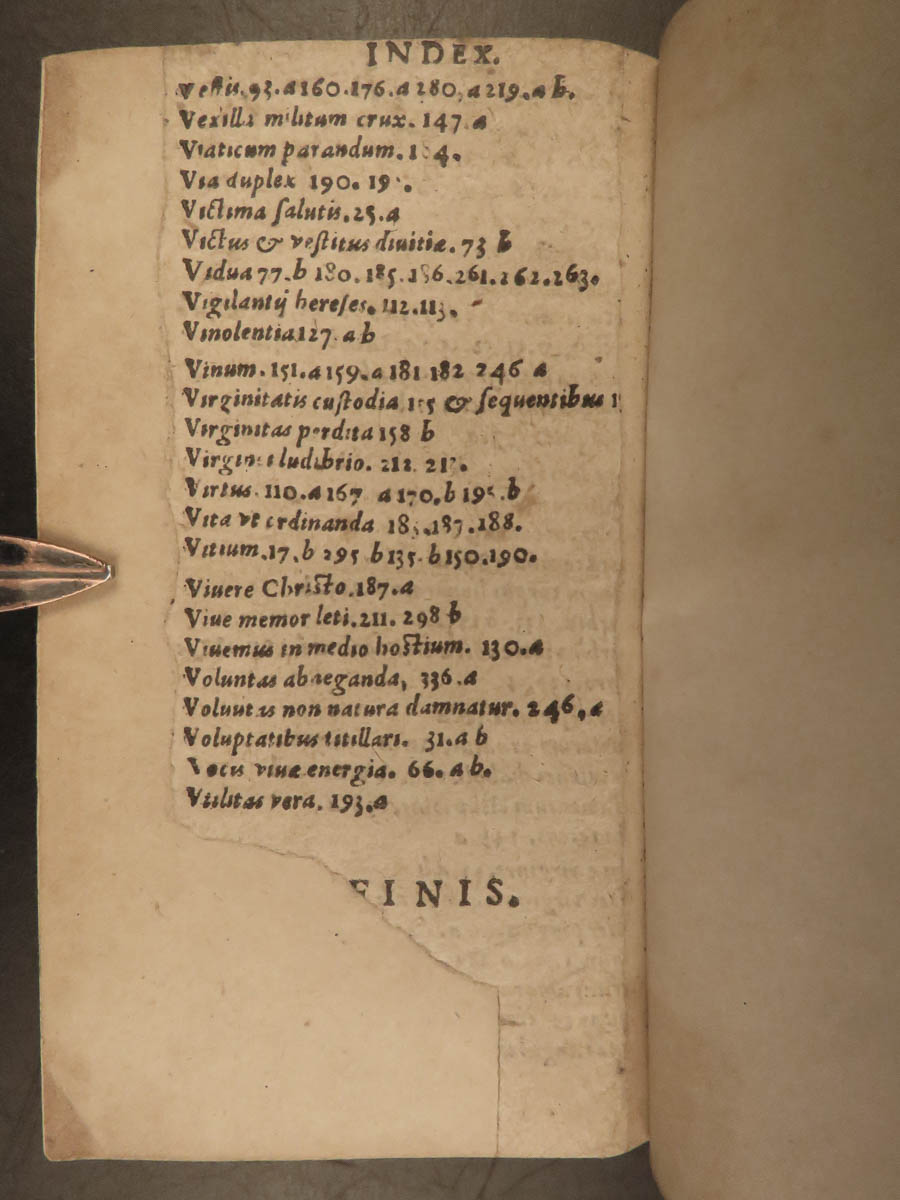 INDEX.
Vestis. 93. a 160. 176. a 280. a 219. a b.
Vexilla militum crux. 147 a
Viaticum parandum.
Via duplex 190.
Victima salutis. 25. a
Victus & vestitus diuitiæ. 73 b
Vidua 77. b 180. 185. 186. 261. 262. 263.
Vigilantij hereses. 112. 113.
Vinolentia 127. a b
Vinum. 151. a 159. a 181 182 246 a
Virginitatis custodia & sequentibus
Virginitas perdita 158 b
ludibrio. 212.
Virtus. 110. a 167 a 170. b b
Vita vt ordinanda 187. 188.
Vitium. 17. b 295 b 135. b 150. 190.
Viuere Christo. 187. a
Viue memor leti. 211. 298 b
Viuemus in medio hostium. 130. a
Voluntas abneganda, 336. a
Voluutas non natura damnatur. 246. a
Voluptatibus titillari. 31. a b
Vocis viuæ energia. 66. a b.
Vtilitas vera. 193. a
FINIS.